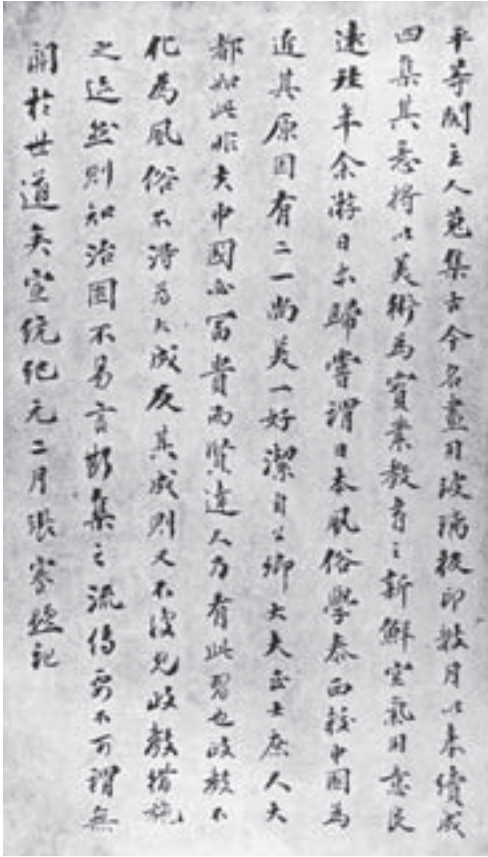 平等閣主人蒐集古今名畫用玻璃板印數月以來續成
四集其意將以美術為實業教育之新鮮空氣用意良
遠往年余游日本歸嘗謂日本風俗學泰西較中國為
近其原因有二一尚美一好潔自公卿大夫至士庶人大
都如此非夫中國必富貴而賢達人乃有此習也政教不
化為風俗不得為大成反其成則又不復見政教措施
之迹然則知治固不易言斯集之流傳要不可謂無
關於世道矣宣統紀元二月張謇題記